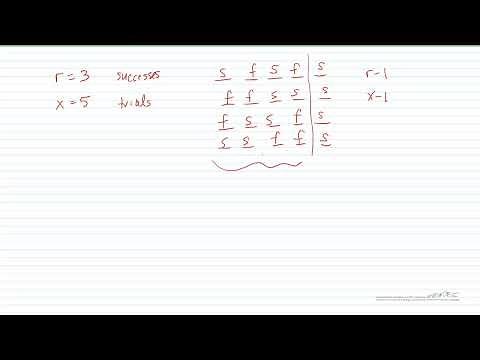 r = 3 successes s f s f s r-1
x = 5 trials f f s s s x-1
f s s f s
s s f f s